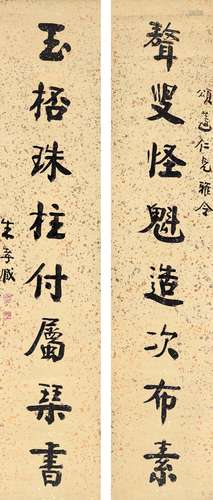 頌仁兄雅令
聱叟怪魁造次布素
玉梧珠柱付屬琹書
朱孝臧